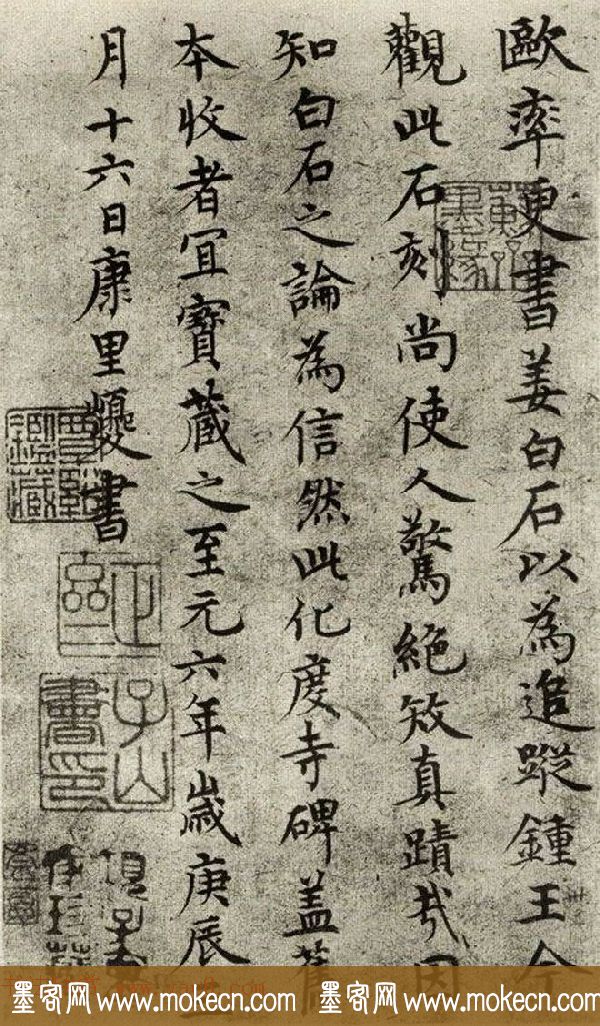 歐率更書姜白石以為追蹤鍾王今
觀此石刻尚使人驚絕矧真蹟哉因
知白石之論為信然此化度寺碑蓋舊
本收者宜寶藏之至元六年歲庚辰
月十六日康里巎書
子山書印
墨客网 www.mokecn.com 墨客网 www.mokecn.com